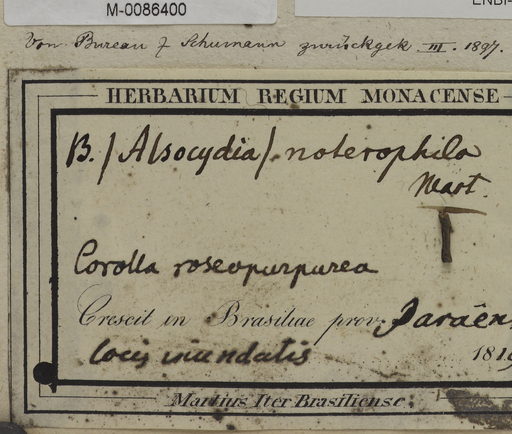 M-0086400
Von Bureau & Schumann zurückgek. III. 1897.
HERBARIUM REGIUM MONACENSE
B. / Alsocydia / noterophila
Mart.
Corolla roseopurpurea
Crescit in Brasiliae prov. Paraëns
locis inundatis
181
Martius Iter Brasiliense.